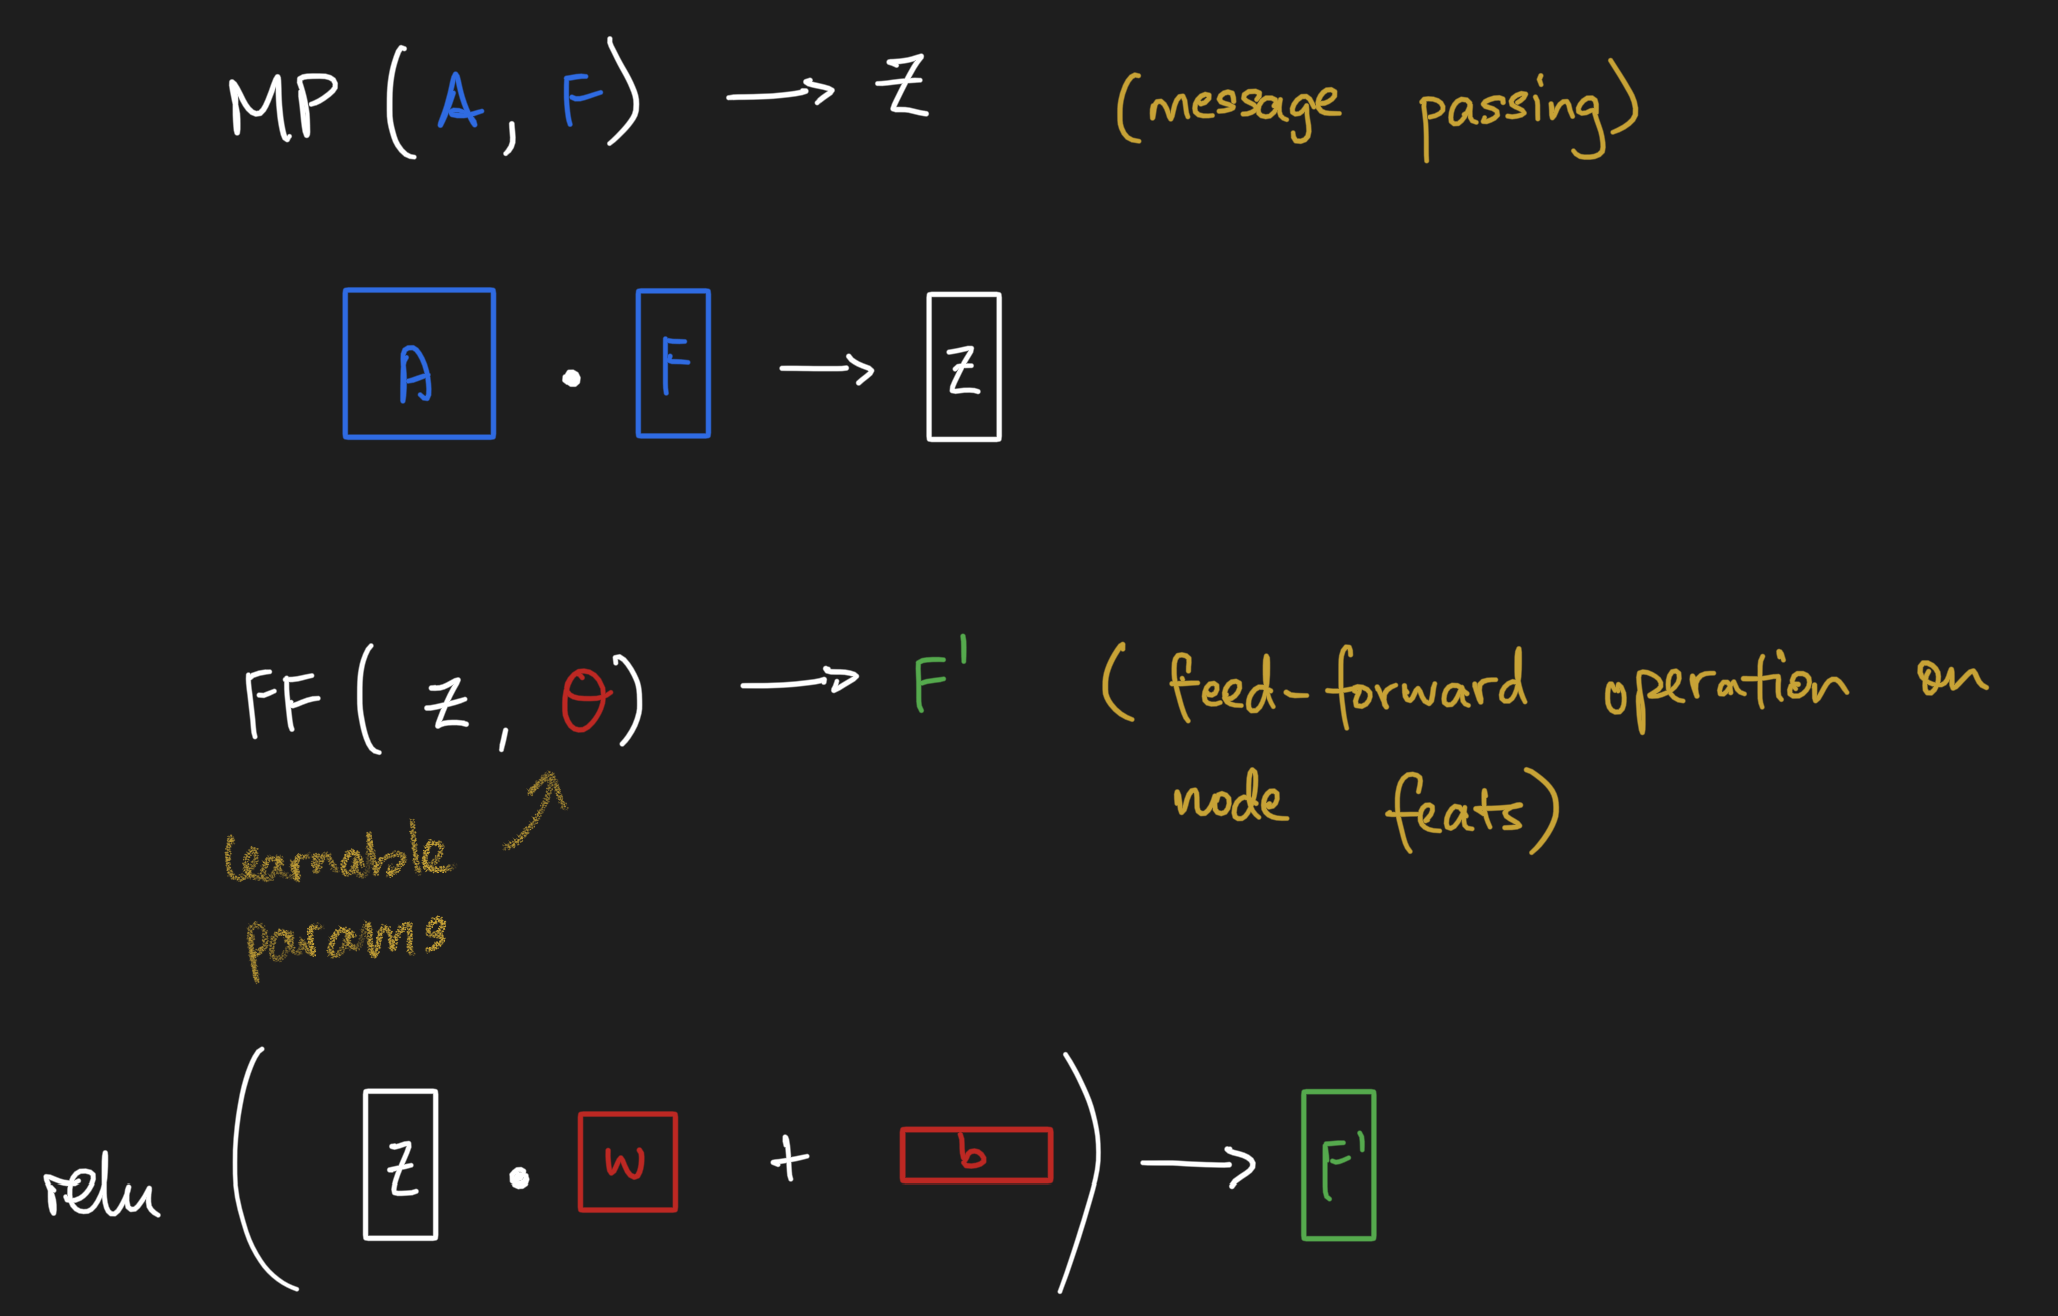 MP (A, F) → Z (message passing)
A · F → Z
FF (Z, θ) → F' (feed-forward operation on
node feats)
learnable
params
relu (Z · W + b) → F'